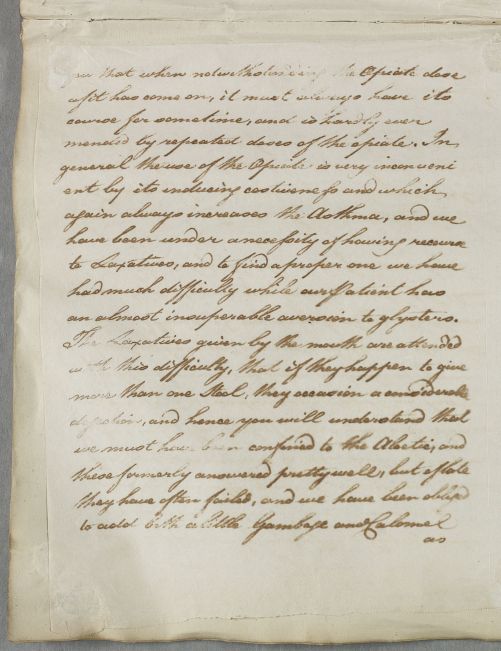 you that when notwithstanding the Opiate dose
a fit has come on, it must always have its
course for sometime, and is hardly ever
mended by repeated doses of the opiate. In
general the use of the Opiate is very inconveni
ent by its inducing costiveness and which
again always increases the Asthma, and we
have been under a necessity of having recourse
to Laxatives, and to find a proper one we have
had much difficulty while our Patient has
an almost insuperable aversion to glysters.
The Laxatives given by the mouth are attended
with this difficulty, that if they happen to give
more than one Stool, they occasion a considerable
dejection, and hence you will understand that
we must have been confined to the Aloetic, and
these formerly answered pretty well, but of late
they have often failed, and we have been obliged
to add both a little Gamboge and Calomel
as